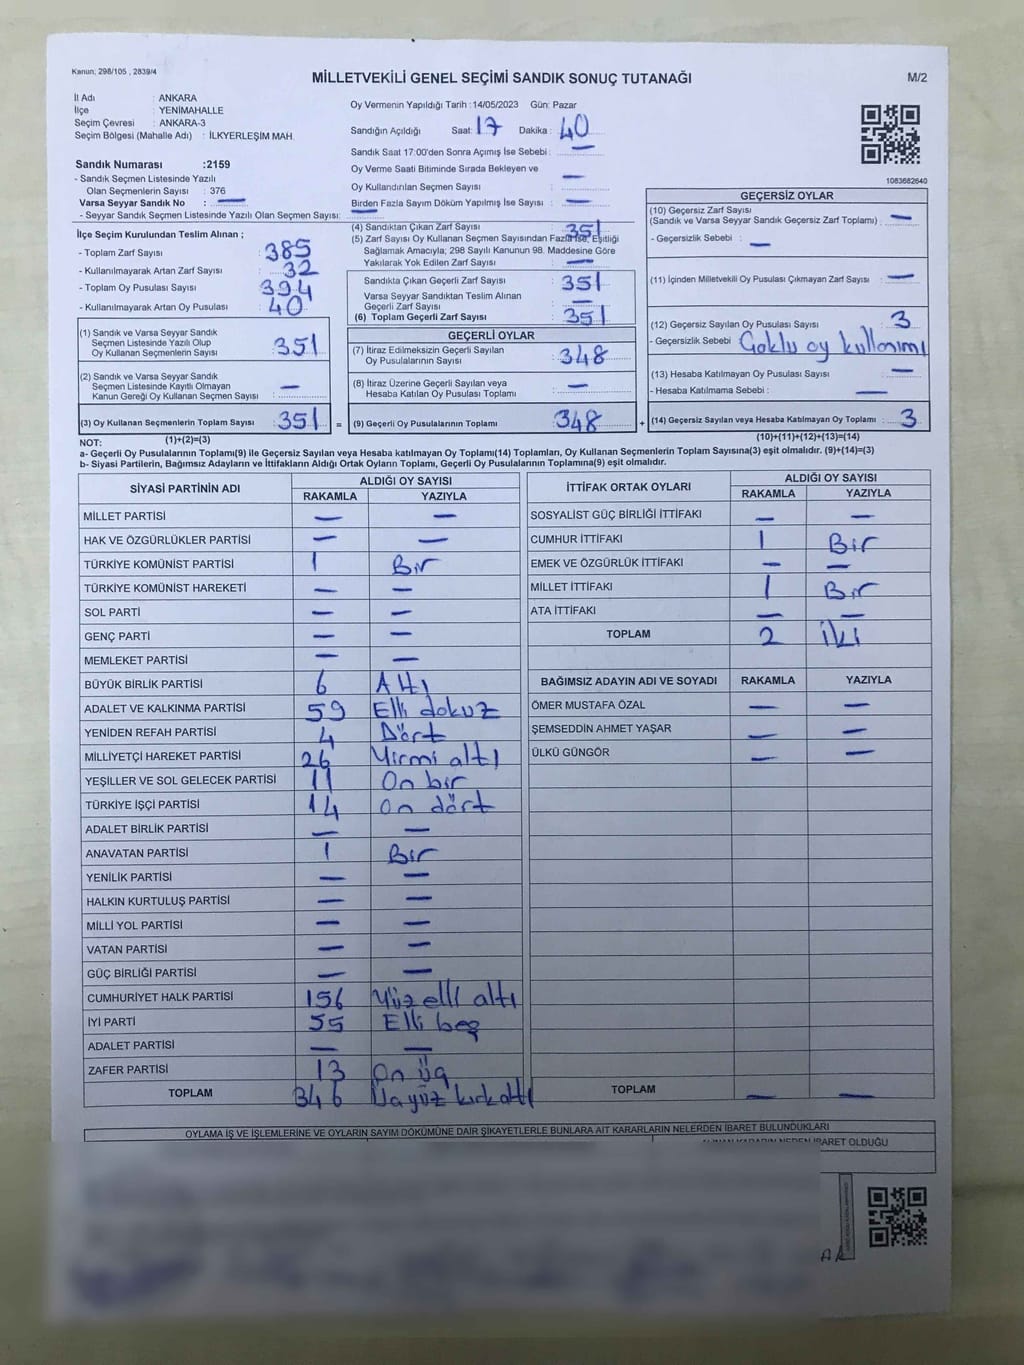 Kanun: 298/105 , 2839/4
MİLLETVEKİLİ GENEL SEÇİMİ SANDIK SONUÇ TUTANAĞI
M/2
İl Adı : ANKARA
İlçe : YENİMAHALLE
Seçim Çevresi : ANKARA-3
Seçim Bölgesi (Mahalle Adı) : İLKYERLEŞİM MAH.
Oy Vermenin Yapıldığı Tarih : 14/05/2023 Gün: Pazar
Sandığın Açıldığı Saat: 17 Dakika : 40
Sandık Saat 17:00'den Sonra Açımış İse Sebebi : —
Oy Verme Saati Bitiminde Sırada Bekleyen ve
Oy Kullandırılan Seçmen Sayısı : —
Birden Fazla Sayım Döküm Yapılmış İse Sayısı : —
1083682640
Sandık Numarası :2159
- Sandık Seçmen Listesinde Yazılı
Olan Seçmenlerin Sayısı : 376
Varsa Seyyar Sandık No : —
- Seyyar Sandık Seçmen Listesinde Yazılı Olan Seçmen Sayısı: —
İlçe Seçim Kurulundan Teslim Alınan ;
- Toplam Zarf Sayısı : 385
- Kullanılmayarak Artan Zarf Sayısı : 32
- Toplam Oy Pusulası Sayısı : 394
- Kullanılmayarak Artan Oy Pusulası : 40
(1) Sandık ve Varsa Seyyar Sandık
Seçmen Listesinde Yazılı Olup
Oy Kullanan Seçmenlerin Sayısı : 351
(2) Sandık ve Varsa Seyyar Sandık
Seçmen Listesinde Kayıtlı Olmayan
Kanun Gereği Oy Kullanan Seçmen Sayısı : —
(3) Oy Kullanan Seçmenlerin Toplam Sayısı : 351 =
(1)+(2)=(3)
(4) Sandıktan Çıkan Zarf Sayısı : 351
(5) Zarf Sayısı Oy Kullanan Seçmen Sayısından Fazla İse, Eşitliği
Sağlamak Amacıyla; 298 Sayılı Kanunun 98. Maddesine Göre
Yakılarak Yok Edilen Zarf Sayısı : —
Sandıkta Çıkan Geçerli Zarf Sayısı : 351
Varsa Seyyar Sandıktan Teslim Alınan
Geçerli Zarf Sayısı : —
(6) Toplam Geçerli Zarf Sayısı : 351
GEÇERLİ OYLAR
(7) İtiraz Edilmeksizin Geçerli Sayılan
Oy Pusulalarının Sayısı : 348
(8) İtiraz Üzerine Geçerli Sayılan veya
Hesaba Katılan Oy Pusulası Toplamı : —
(9) Geçerli Oy Pusulalarının Toplamı : 348 +
GEÇERSİZ OYLAR
(10) Geçersiz Zarf Sayısı
(Sandık ve Varsa Seyyar Sandık Geçersiz Zarf Toplamı) : —
- Geçersizlik Sebebi : —
(11) İçinden Milletvekili Oy Pusulası Çıkmayan Zarf Sayısı : —
(12) Geçersiz Sayılan Oy Pusulası Sayısı : 3
- Geçersizlik Sebebi Çoklu oy kullanımı
(13) Hesaba Katılmayan Oy Pusulası Sayısı : —
- Hesaba Katılmama Sebebi : —
(14) Geçersiz Sayılan veya Hesaba Katılmayan Oy Toplamı : 3
(10)+(11)+(12)+(13)=(14)
NOT:
a- Geçerli Oy Pusulalarının Toplamı(9) ile Geçersiz Sayılan veya Hesaba katılmayan Oy Toplamı(14) Toplamları, Oy Kullanan Seçmenlerin Toplam Sayısına(3) eşit olmalıdır. (9)+(14)=(3)
b- Siyasi Partilerin, Bağımsız Adayların ve İttifakların Aldığı Ortak Oyların Toplamı, Geçerli Oy Pusulalarının Toplamına(9) eşit olmalıdır.
SİYASİ PARTİNİN ADI ALDIĞI OY SAYISI
RAKAMLA YAZIYLA
MİLLET PARTİSİ — —
HAK VE ÖZGÜRLÜKLER PARTİSİ — —
TÜRKİYE KOMÜNİST PARTİSİ 1 Bir
TÜRKİYE KOMÜNİST HAREKETİ — —
SOL PARTİ — —
GENÇ PARTİ — —
MEMLEKET PARTİSİ — —
BÜYÜK BİRLİK PARTİSİ 6 Altı
ADALET VE KALKINMA PARTİSİ 59 Elli dokuz
YENİDEN REFAH PARTİSİ 4 Dört
MİLLİYETÇİ HAREKET PARTİSİ 26 Yirmi altı
YEŞİLLER VE SOL GELECEK PARTİSİ 11 On bir
TÜRKİYE İŞÇİ PARTİSİ 14 on dört
ADALET BİRLİK PARTİSİ — —
ANAVATAN PARTİSİ 1 Bir
YENİLİK PARTİSİ — —
HALKIN KURTULUŞ PARTİSİ — —
MİLLİ YOL PARTİSİ — —
VATAN PARTİSİ — —
GÜÇ BİRLİĞİ PARTİSİ — —
CUMHURİYET HALK PARTİSİ 156 Yüz elli altı
İYİ PARTİ 55 Elli beş
ADALET PARTİSİ — —
ZAFER PARTİSİ 13 On üç
TOPLAM 346 Üçyüz kırkaltı
İTTİFAK ORTAK OYLARI ALDIĞI OY SAYISI
RAKAMLA YAZIYLA
SOSYALİST GÜÇ BİRLİĞİ İTTİFAKI — —
CUMHUR İTTİFAKI 1 Bir
EMEK VE ÖZGÜRLÜK İTTİFAKI — —
MİLLET İTTİFAKI 1 Bir
ATA İTTİFAKI — —
TOPLAM 2 iki
BAĞIMSIZ ADAYIN ADI VE SOYADI RAKAMLA YAZIYLA
ÖMER MUSTAFA ÖZAL — —
ŞEMSEDDİN AHMET YAŞAR — —
ÜLKÜ GÜNGÖR — —
TOPLAM — —
OYLAMA İŞ VE İŞLEMLERİNE VE OYLARIN SAYIM DÖKÜMÜNE DAİR ŞİKAYETLERLE BUNLARA AİT KARARLARIN NELERDEN İBARET BULUNDUKLARI